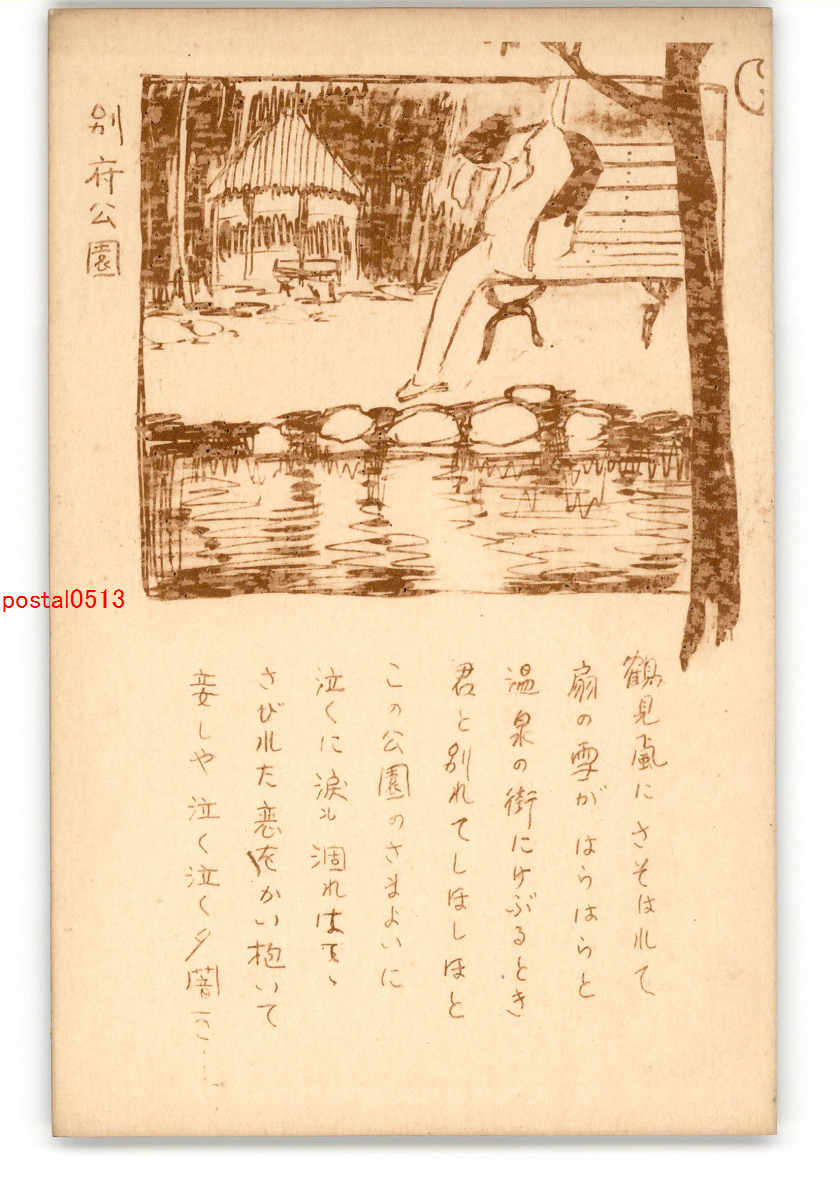 別府公園
鶴見颪にさそはれて
扇の雪がはらはらと
温泉の街にけぶるとき
君と別れてしほしほと
この公園のさまよいに
泣くに涙も涸れはてゝ
さびれた恋をかい抱いて
妾しや泣く泣く夕闇
postal0513